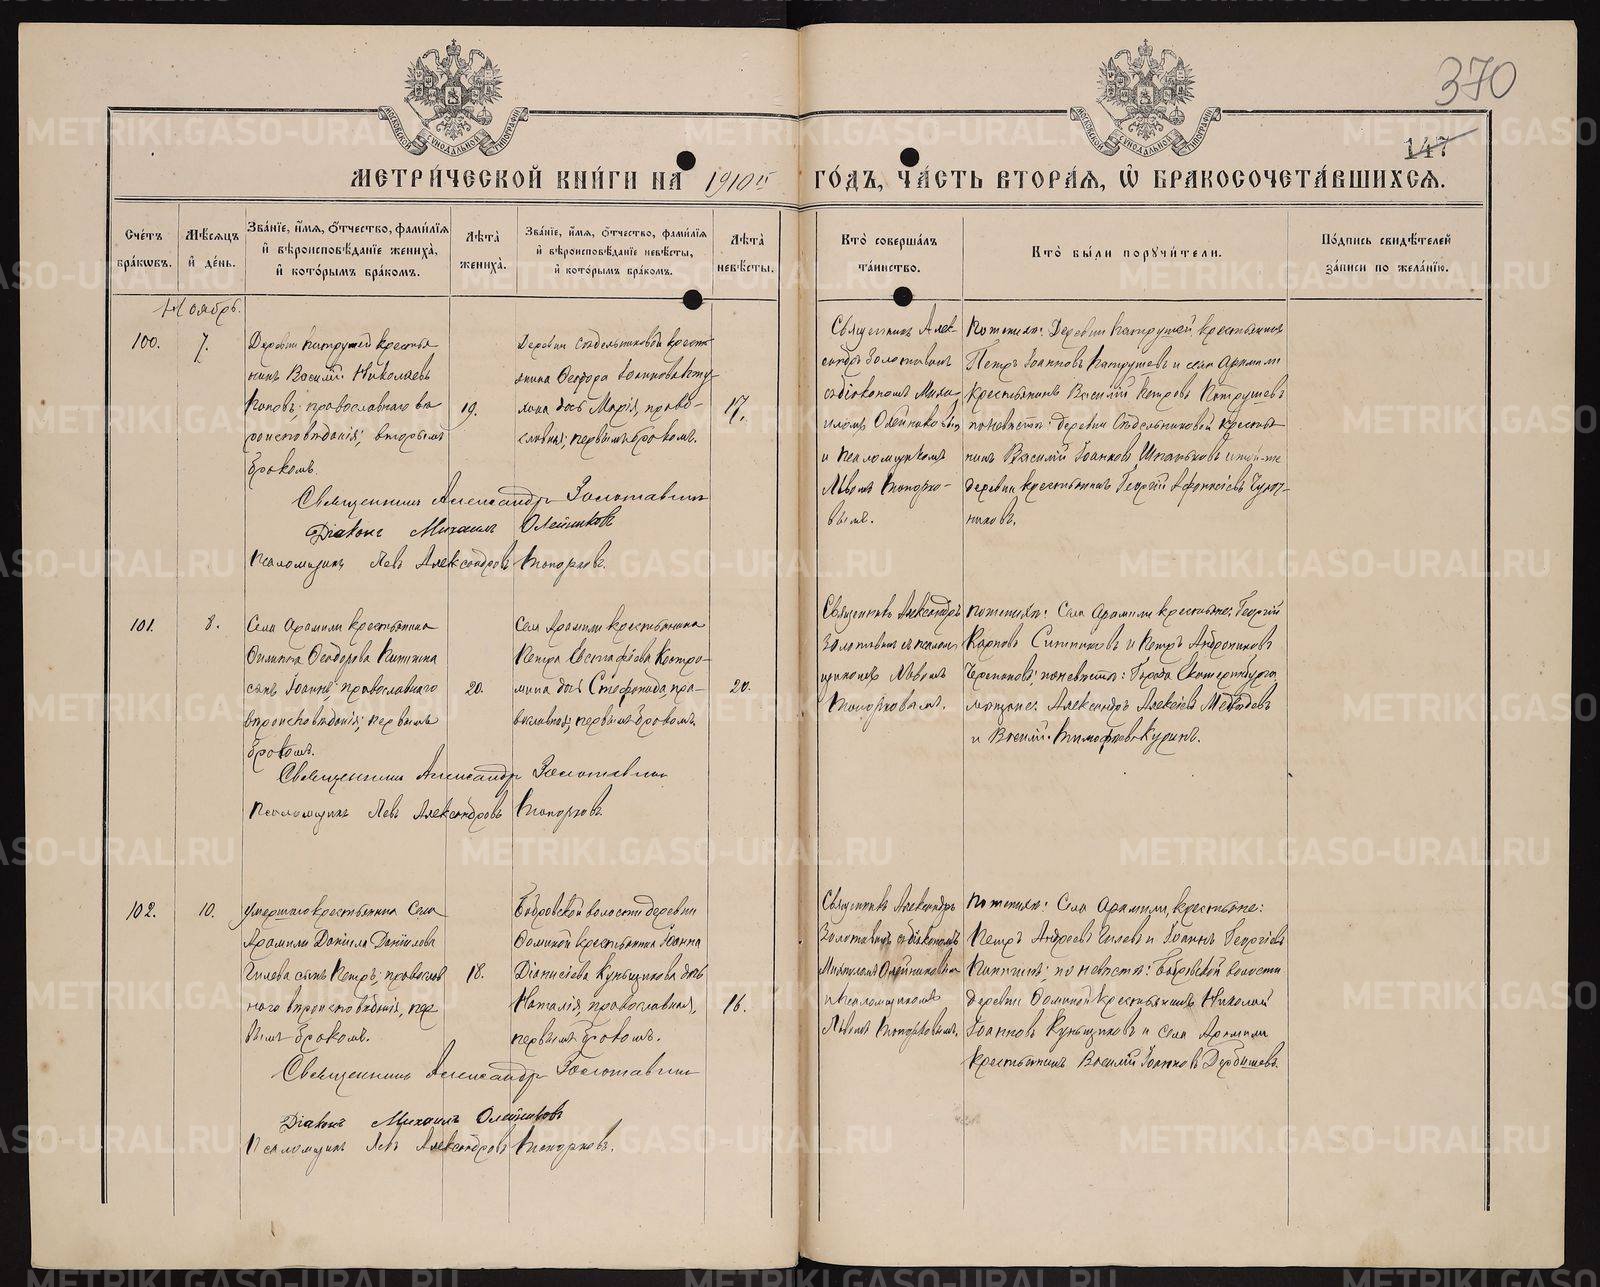 370
147
МЕТРИЧЕСКОЙ КНИГИ НА 1910й ГОДЪ, ЧАСТЬ ВТОРАЯ, Ѡ БРАКОСОЧЕТАВШИХСЯ.
Счетъ браковъ.
Мѣсяцъ и день.
Званіе, имя, отчество, фамилія и вѣроисповѣданіе жениха, и которымъ бракомъ.
Лѣта жениха.
Званіе, имя, отчество, фамилія и вѣроисповѣданіе невѣсты, и которымъ бракомъ.
Лѣта невѣсты.
Кто совершалъ таинство.
Кто были поручители.
Подпись свидѣтелей записи по желанію.
Ноябрь.
100.
7.
Деревни Патрушей крестья
нинъ Василій Николаевъ
Поповъ, православнаго вѣ
роисповѣданія, вторымъ
бракомъ.
19.
Деревни Сидельниковой крестья
янина Ѳеодора Іоаннова
дочь Марія, право-
славная, первымъ бракомъ.
17.
Священникъ Алек-
сандръ Золотавинъ
съ діакономъ Миха-
иломъ Олейниковымъ
и псаломщикомъ
Львомъ Топорко-
вымъ.
По женихѣ: Деревни Патрушей крестьянинъ
Петръ Іоанновъ Патрушевъ и села Арамили
крестьянинъ Василій Петровъ Патрушевъ
по невѣстѣ: деревни Сидельниковой крестья
нинъ Василій Іоанновъ и той-же
деревни крестьянинъ Георгій Аѳанасіевъ
Священникъ Александръ Золотавинъ
Діаконъ Михаилъ Олейниковъ
Псаломщикъ Левъ Александровъ Топорковъ.
101.
8.
Села Арамили крестьянина
Филиппа Ѳеодорова
сынъ Іоаннъ, православнаго
вѣроисповѣданія, первымъ
бракомъ.
20.
Села Арамили крестьянина
Петра Евстафіева Костро-
мина дочь Стефанида, пра-
вославная, первымъ бракомъ.
20.
Священникъ Александръ
Золотавинъ съ псалом-
щикомъ Львомъ
Топорковымъ.
По женихѣ: Села Арамили крестьяне: Георгій
Карповъ Ситниковъ и Петръ Андрониковъ
Черепановъ; по невѣстѣ: Города Екатеринбурга
мѣщане: Александръ Алексіевъ
и Василій Тимофѣевъ Куринъ.
Священникъ Александръ Золотавинъ
Псаломщикъ Левъ Александровъ Топорковъ.
102.
10.
Умершаго крестьянина Села
Арамили Даніила Даніилова
Гилева сынъ Петръ, православ
наго вѣроисповѣданія, пер
вымъ бракомъ.
18.
Бобровской волости деревни
Ѳоминой крестьянина Іоанна
Діонисіева Куньщикова дочь
Наталія, православная,
первымъ бракомъ.
16.
Священникъ Александръ
Золотавинъ съ діакономъ
Михаиломъ Олейниковымъ
и псаломщикомъ
Львомъ Топорковымъ.
По женихѣ: Села Арамили, крестьяне:
Петръ Андреевъ Гилевъ и Іоаннъ Георгіевъ
по невѣстѣ: Бобровской волости
деревни Ѳоминой крестьянинъ Николай
Іоанновъ Куньщиковъ и села Арамили
крестьянинъ Василій Іоанновъ Дербышевъ.
Священникъ Александръ Золотавинъ
Діаконъ Михаилъ Олейниковъ
Псаломщикъ Левъ Александровъ Топорковъ.
METRIKI.GASO-URAL.RU